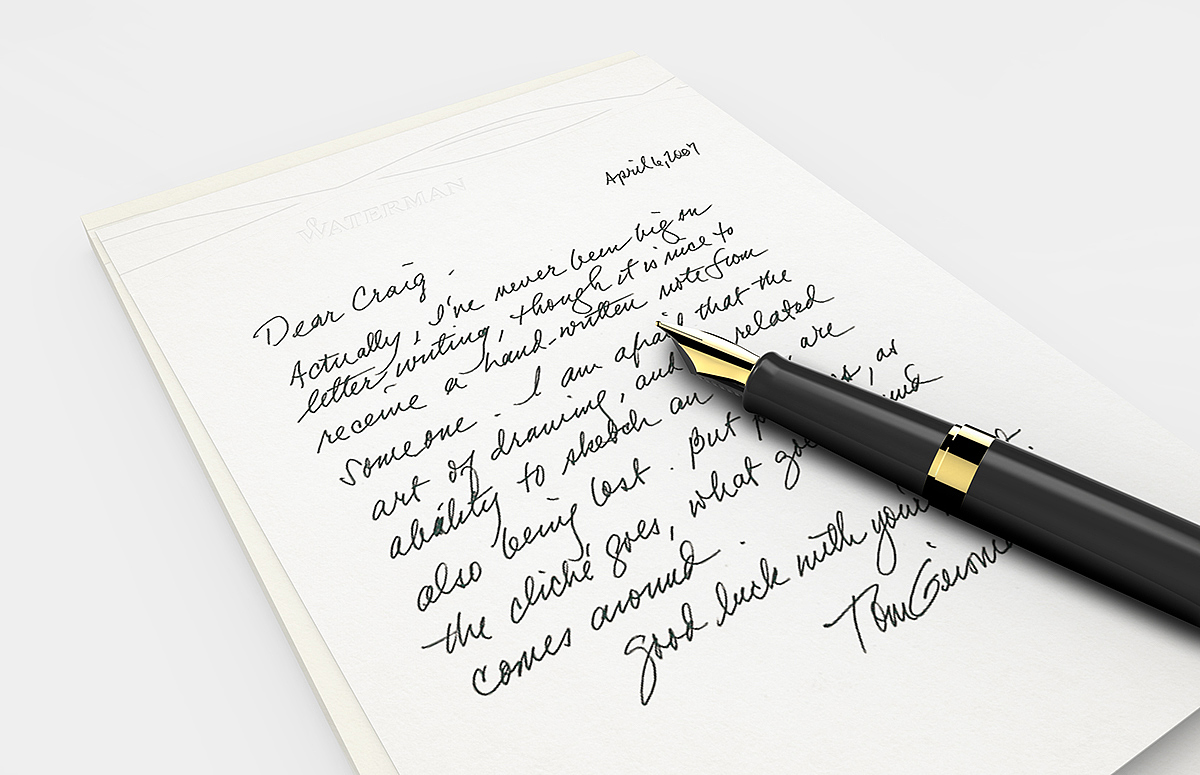 WATERMAN
April 6, 2007
Dear Craig,
Actually, I've never been big on
letter writing, though it is nice to
receive a hand-written note from
someone. I am afraid that the
art of drawing, and related
ability to sketch an are
also being lost. But is, as
the cliché goes, what goes
comes around.
good luck with your
Tom